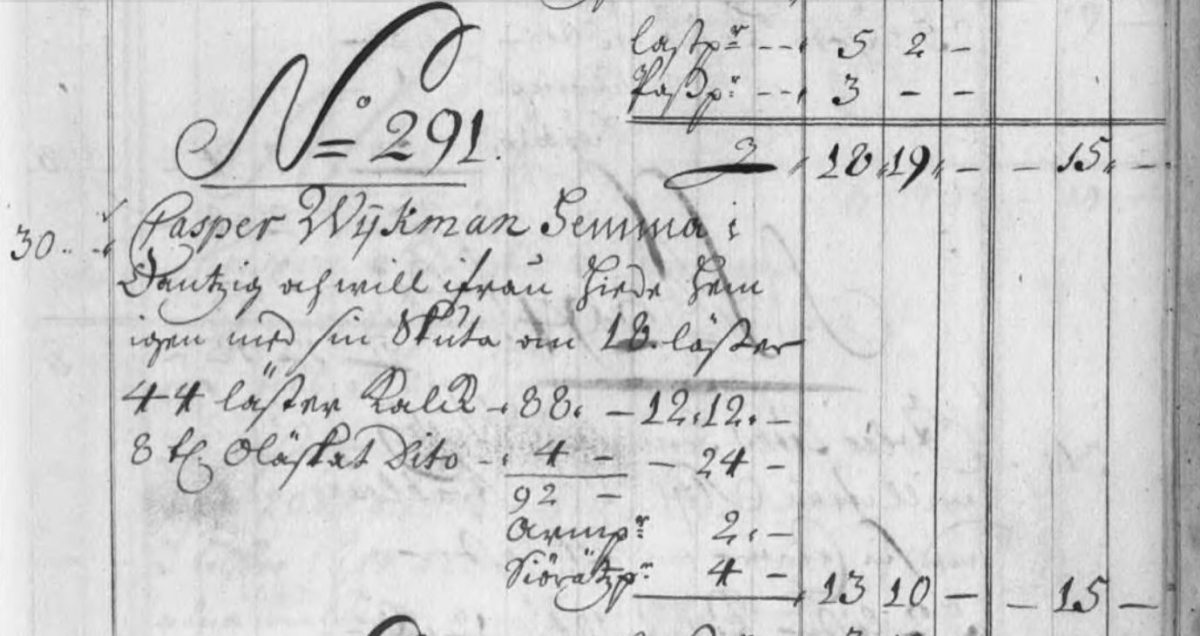 lastp:r -- 5 2 -
Passp:r -- 3 - -
N:o = 291.
18 19 - - 15 -
30 Casper Wijkman Hemma i
Dantzig och will ifrån hiede hem
igen med sin Skuta om 18 läster
44 läster Kalck - 88. - 12. 12. -
8 tr Oläskat Dito - 4 - - 24 -
92 -
Armp:r 2. -
Siörätzp:r 4 - 13 10 - - 15 -